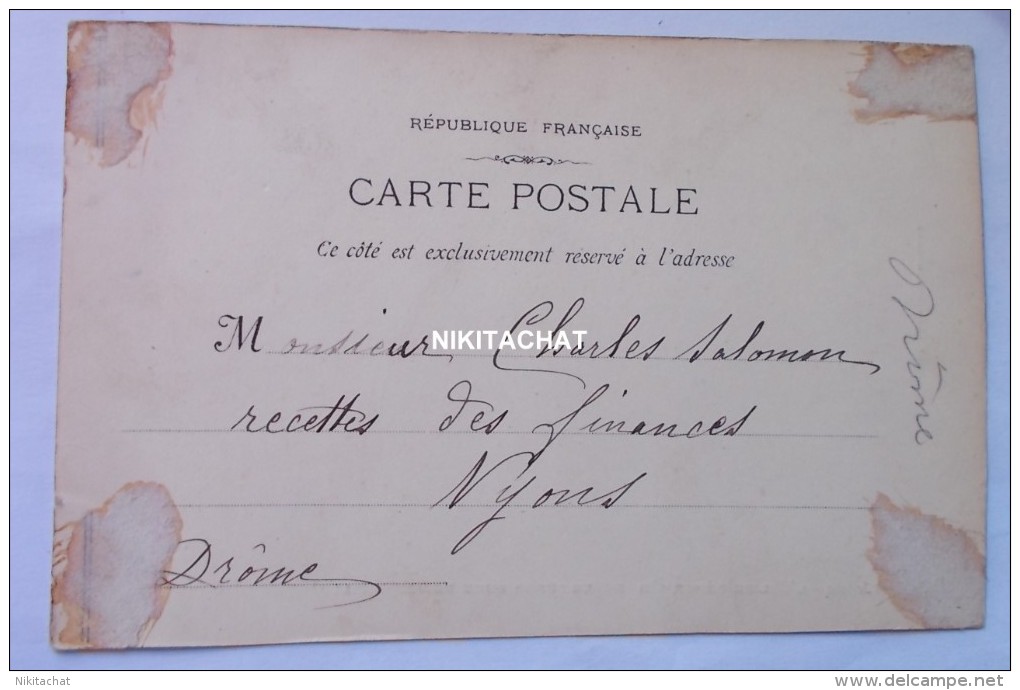 RÉPUBLIQUE FRANÇAISE
CARTE POSTALE
Ce côté est exclusivement réservé à l'adresse
Monsieur Charles Salomon
NIKITACHAT
recettes des finances
Nyons
Drôme
Drôme
Nikitachat
delcampe.net